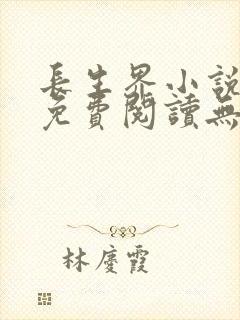 長生界小說
免費閱讀無
林慶霞